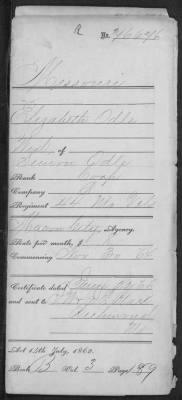 R No. 76676
Missouri
Elizabeth Odle
Wid. of
Simeon Odle
Rank
Company
Regiment 44 Mo Vols
Macon City, Agency.
Rate per month, 8
Commencing Nov 30 64
Certificate dated
and sent to
Richmond
Mo
Act 14th July, 1862.
Book B Vol. 3 Page